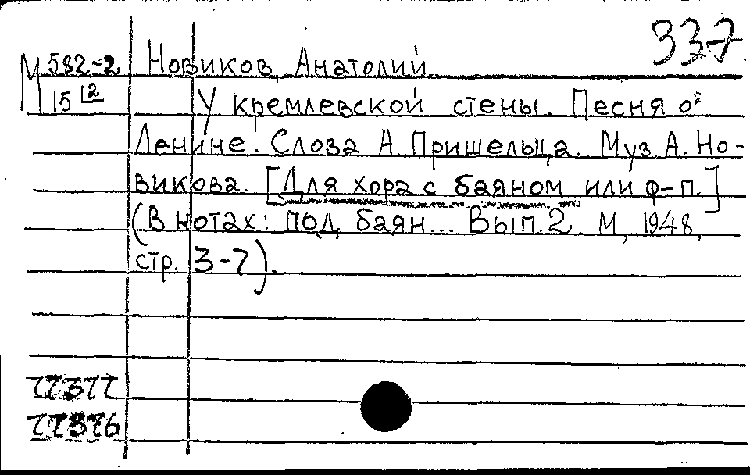 337
М 582-2 Новиков Анатолий
15 12 У кремлевской стены. Песня о
Ленине. Слова А. Пришельца. Муз. А. Но-
викова. [Для хора с баяном или ф-п.]
(В нотах: Под баян... Вып. 2. М., 1948,
стр. 3-7).